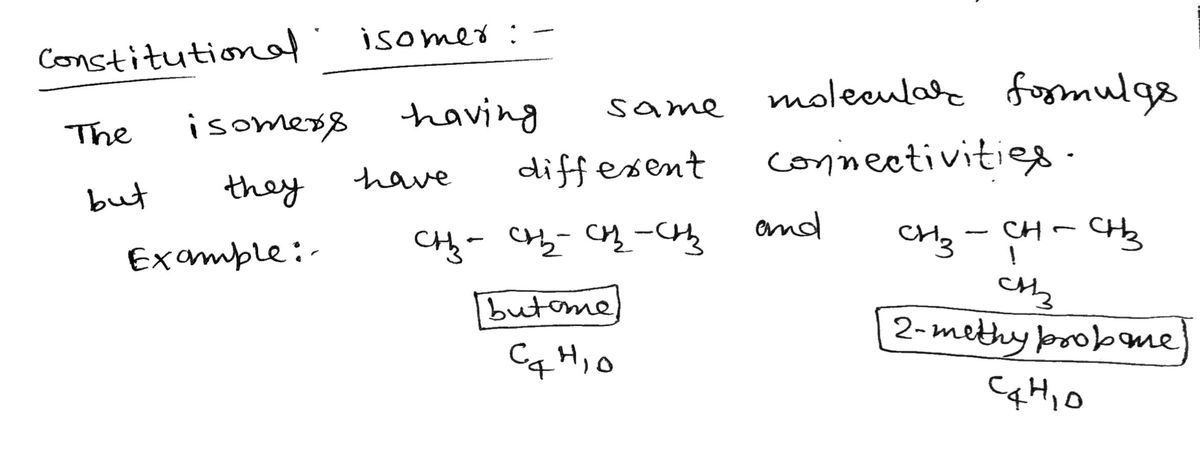 Constitutional isomer :-
The isomers having same molecular formulas
but they have different connectivities.
Example:- CH3 - CH2 - CH2 - CH3 and CH3 - CH - CH3
|
CH3
butane 2-methylpropane
C4H10 C4H10